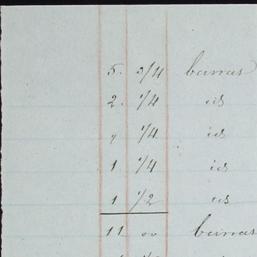 5. 3/4 barras
2. 1/4 id
" 1/4 id
1 1/4 id
1 1/2 id
11 00 barras